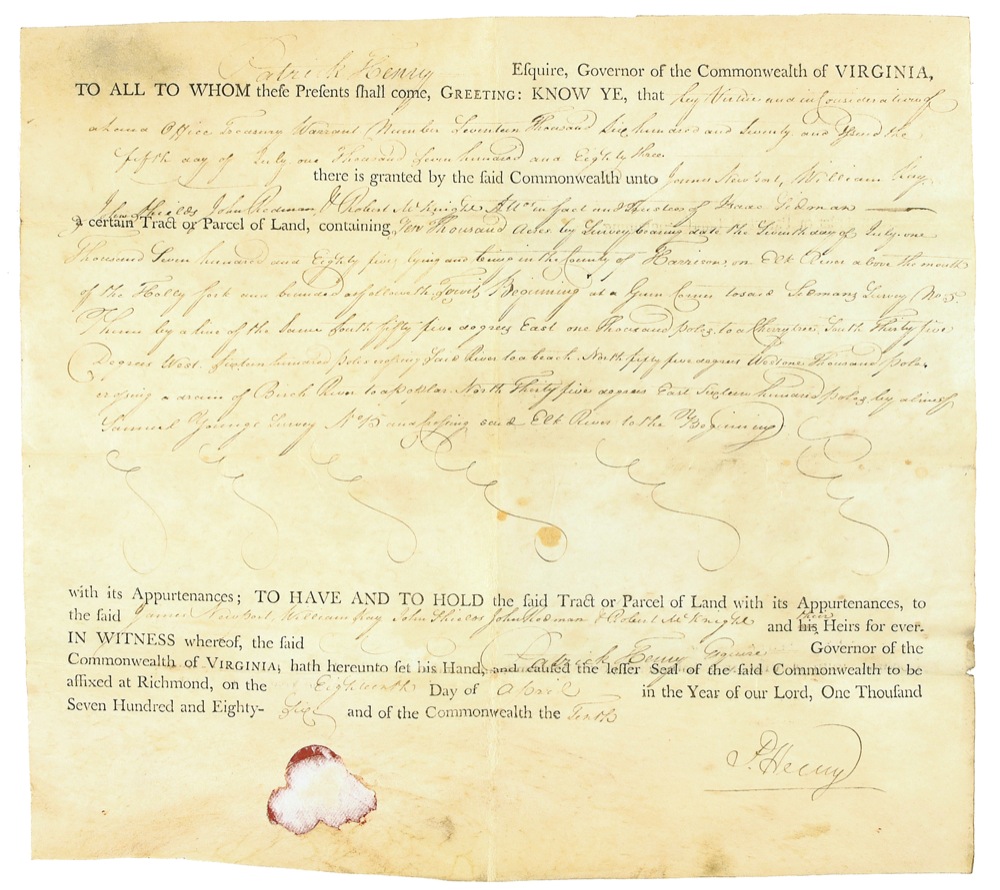 Patrick Henry Esquire, Governor of the Commonwealth of VIRGINIA,
TO ALL TO WHOM theſe Preſents ſhall come, GREETING: KNOW YE, that by Virtue and in Consideration of
a Land Office Treasury Warrant Number Seventeen Thousand Six hundred and Seventy and Issued the
fifth day of July one Thousand Seven hundred and Eighty three
there is granted by the ſaid Commonwealth unto James Newbert, William Hay
John Shields John Rodman & Robert McKnight Attos. in fact and Trustees of Isaac Sidman
a certain Tract or Parcel of Land, containing Ten Thousand Acres by Survey bearing date the Seventh day of July one
Thousand Seven hundred and Eighty five lying and being in the County of Harrison, on Elk River above the mouth
of the Holly fork and bounded as followeth Towit, Beginning at a Gum Corner to said Sidmans Survey No 5
Thence by a line of the Same South fifty five degrees East one Thousand poles, to a Cherry tree, South Thirty five
Degrees West Sixteen hundred poles crossing said River to a beach. North fifty five degrees West one Thousand poles
crossing a dream of Birch River to a poplar. North Thirty five degrees East Sixteen hundred poles by a line of
Samuel Youngs Survey No 15 and crossing said Elk River to the Beginning
with its Appurtenances; TO HAVE AND TO HOLD the ſaid Tract or Parcel of Land with its Appurtenances, to
the ſaid James Newbert, William Hay John Shields John Rodman & Robert McKnight and his their Heirs for ever.
IN WITNESS whereof, the ſaid Patrick Henry Esquire Governor of the
Commonwealth of VIRGINIA, hath hereunto ſet his Hand, and cauſed the leſſer Seal of the ſaid Commonwealth to be
affixed at Richmond, on the Eighteenth Day of April in the Year of our Lord, One Thouſand
Seven Hundred and Eighty- Six and of the Commonwealth the Tenth
P. Henry